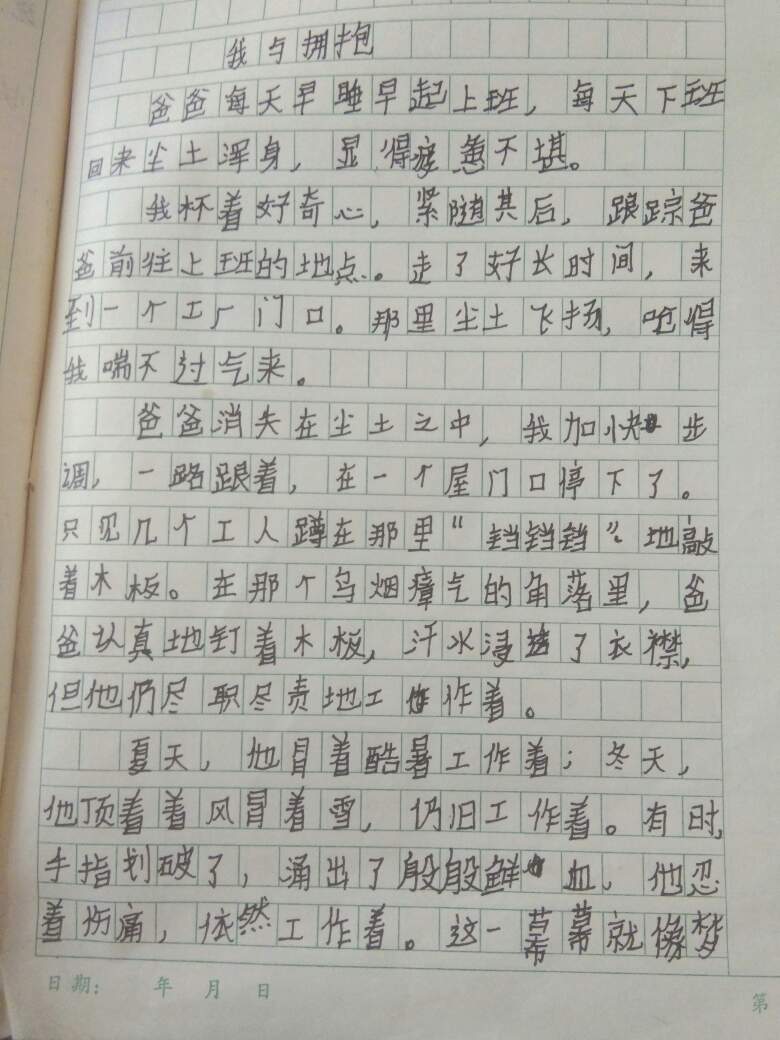 我与拥抱
爸爸每天早睡早起上班，每天下班
回来尘土浑身，显得疲惫不堪。
我怀着好奇心，紧随其后，跟踪爸
爸前往上班的地点。走了好长时间，来
到一个工厂门口。那里尘土飞扬，呛得
我喘不过气来。
爸爸消失在尘土之中，我加快步
调，一路跟着，在一个屋门口停下了。
只见几个工人蹲在那里“铛铛铛”地敲
着木板。在那个乌烟瘴气的角落里，爸
爸认真地钉着木板，汗水浸透了衣襟，
但他仍尽职尽责地工作着。
夏天，他冒着酷暑工作着；冬天，
他顶着着风冒着雪，仍旧工作着。有时，
手指划破了，涌出了殷殷鲜血，他忍
着伤痛，依然工作着。这一幕幕就像梦
日期： 年 月 日
第